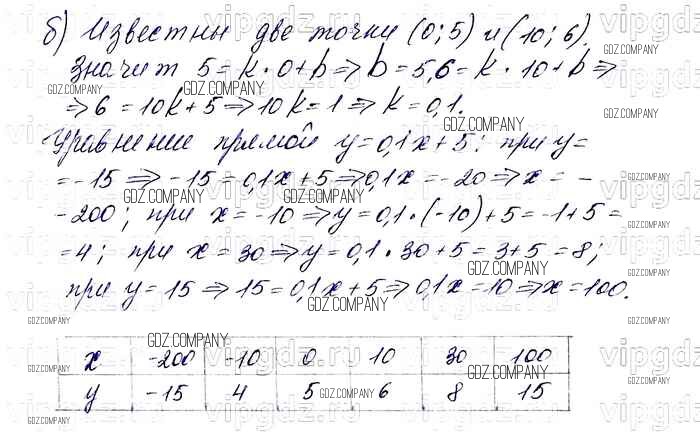 б) Известны две точки (0; 5) и (10; 6).
Значит 5 = k · 0 + b ⇒ b = 5, 6 = k · 10 + b ⇒
⇒ 6 = 10k + 5 ⇒ 10k = 1 ⇒ k = 0,1.
Уравнение прямой y = 0,1x + 5; при y =
= -15 ⇒ -15 = 0,1x + 5 ⇒ 0,1x = -20 ⇒ x = -
-200; при x = -10 ⇒ y = 0,1 · (-10) + 5 = -1 + 5 =
= 4; при x = 30 ⇒ y = 0,1 · 30 + 5 = 3 + 5 = 8;
при y = 15 ⇒ 15 = 0,1x + 5 ⇒ 0,1x = 10 ⇒ x = 100.
x -200 -10 0 10 30 100
y -15 4 5 6 8 15